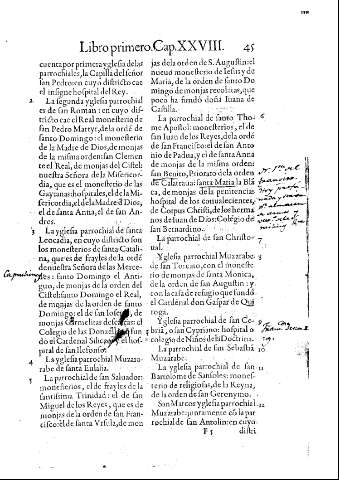 Libro primero. Cap. XXVIII. 45
cuenta por primera yglesia de las
parrochiales, la Capilla del señor
san Pedro: en cuyo districto cae
el insigne hospital del Rey.
2 La segunda yglesia parrochial
er de san Roman: en cuyo dis-
tricto cae el Real monesterio de
san Pedro Martyr, de la orde de
santo Domingo: el monesterio
de la Madre de Dios, de monjas
de la misma orden: san Clemen
te el Real, de monjas del Cistel:
nuestra Señora de la Misericor-
dia, que es el monesterio de las
Gaytanas: hospitales, el de la Mi-
sericordia, el de la Madre d Dios,
el de santa Anna, el de san An-
dres.
3 La yglesia parrochial de santa
Leocadia, en cuyo districto son
los monesterios de santa Catali-
na, que es de frayles de la orde
de nuestra Señora de las Merce-
4 des: santo Domingo el Anti-
guo, de monjas de la orden del
Cistel: santo Domingo el Real,
de monjas de la orden de santo
Domingo: el de
monjas Carmelitas descalças: el
Colegio de las Donzellas
do el Cardenal Siliceo: el hos-
pital de san Ilefonso.
La yglesia parrochial Muzara-
be de santa Eulalia.
5 La parrochial de san Saluador:
monesterios, el de frayles de la
santissima Trinidad: el de san
Miguel de los Reyes, que es de
monjas de la orden de san Fran-
cisco: el de santa Vrsula, de mon
jas de la orden de S. Augustin: el
nueuo monesterio de Iesus y de
Maria, de la orden de santo Do
mingo de monjas recoletas, que
poco ha fundó doña Iuana de
Castilla.
La parrochial de santo Tho- 6
me Apostol: monesterios, el de
san Iuan de los Reyes, de la orde
de san Francisco: el de san Anto
nio de Padua, y el de santa Anna
de monjas de la misma orden:
san Benito, Priorato de la orden
de Calatraua: santa Maria la Blā
ca, de monjas de la penitencia:
hospital de los conualecientes,
de Corpus Christi, de los herma
nos de Iuan de Dios: Colegio de
san Bernardino.
La parrochial de san Christo- 7
ual.
Yglesia parrochial Muzarabe
de san Torcato, con el moneste-
rio de monjas de santa Monica,
de la orden de san Augustin: y
con la casa de refugio que fundó
el Cardenal don Gaspar de Qui
roga.
Yglesia parrochial de san Ce- 8
briā, o san Cypriano: hospital o
colegio de Niños de la Doctrina. 9
La parrochial de san Sebastiā 10
Muzarabe.
La yglesia parrochial de san 11
Bartolome de Sansoles: mones-
terio de religiosas, de la Reyna,
de la orden de san Geronymo.
San Marcos yglesia parrochial 12
Muzarabe: juntamente es la par
rochial de san Antolin: en cuyo
F 5 distri